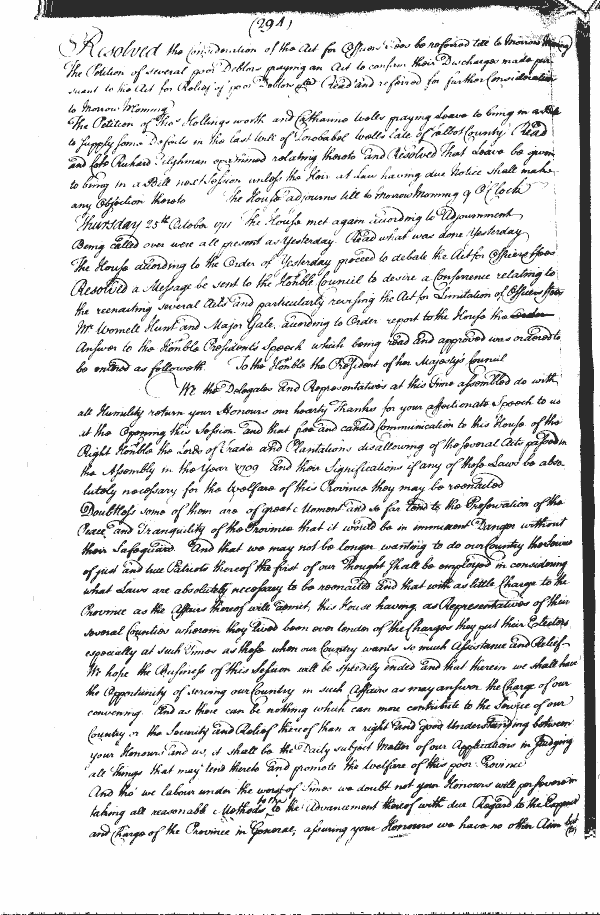 (294)
Resolved the Consideration of the Act for Officers Fees be referred till to Morrow Morning
The Petition of several poor Debtors praying an Act to confirm their Discharges made pur
suant to the Act for Relief of poor Debtors Read and referred for further Consideration
to Morrow Morning
The Petition of Thos Hollingsworth and Catharine Wells praying Leave to bring in a Bill
to supply some Defects in the last Will of Zorobabel Wells late of Talbot County Read
and Coll Richard Tilghman examined relating thereto and Resolved That Leave be given
to bring in a Bill next Session unless the Heir at Law having due Notice shall make
any Objection thereto The House adjourns till to Morrow Morning 9 O'Clock
Thursday 25th October 1711 The House met again according to Adjournment
Being called over were all present as Yesterday. Read what was done Yesterday
The House according to the Order of Yesterday proceed to debate the Act for Officers Fees
Resolved a Message be sent to the Honble Council to desire a Conference relating to
the reenacting several Acts and particularly revising the Act for Limitation of Officers Fees
Mr Wornell Hunt and Major Gale, according to Order report to the House the Order
Answer to the Honble Presidents Speech which being read and approved was ordered to
be entered as followeth To the Honble the President of her Majestys Council
We the Delegates and Representatives at this time assembled do with
all Humility return your Honours our hearty Thanks for your affectionate Speech to us
at the Opening this Session and that free and candid Communication to this House of the
Right Honble the Lords of Trade and Plantations disallowing of the several Acts passed in
the Assembly in the Year 1709 and their Significations if any of those Laws be abso
lutely necessary for the Welfare of this Province they may be reenacted
Doubtless some of them are of great Moment and so far tend to the Preservation of the
Peace and Tranquility of the Province that it would be in imminent Danger without
their Safeguard. And that we may not be longer wanting to do our Country the Service
of just and true Patriots thereof the first of our Thought shall be employed in considering
what Laws are absolutely necessary to be reenacted and that with as little Charge to the
Province as the Affairs thereof will admit, this House having as Representatives of their
several Counties wherein they lived been ever tender of the Charges they put their Electors
especially at such Times as these when our Country wants so much Assistance and Relief
We hope the Business of this Session will be speedily ended and that therein we shall have
the Opportunity of serving our Country in such Affairs as may answer the Charge of our
convening. And as there can be nothing which can more contribute to the Service of our
Country or the Security and Relief thereof than a right and good Understanding between
your Honours and us, it shall be the Daily subject Matter of our Applications in Judging
all Things that may tend thereto and promote the Welfare of this poor Province
And tho' we labour under the worst of Times we doubt not your Honours will persevere in
taking all reasonable Methods to the Advancement thereof with due Regard to the Expence
and Charge of the Province in General, assuring your Honours we have no other Aim but